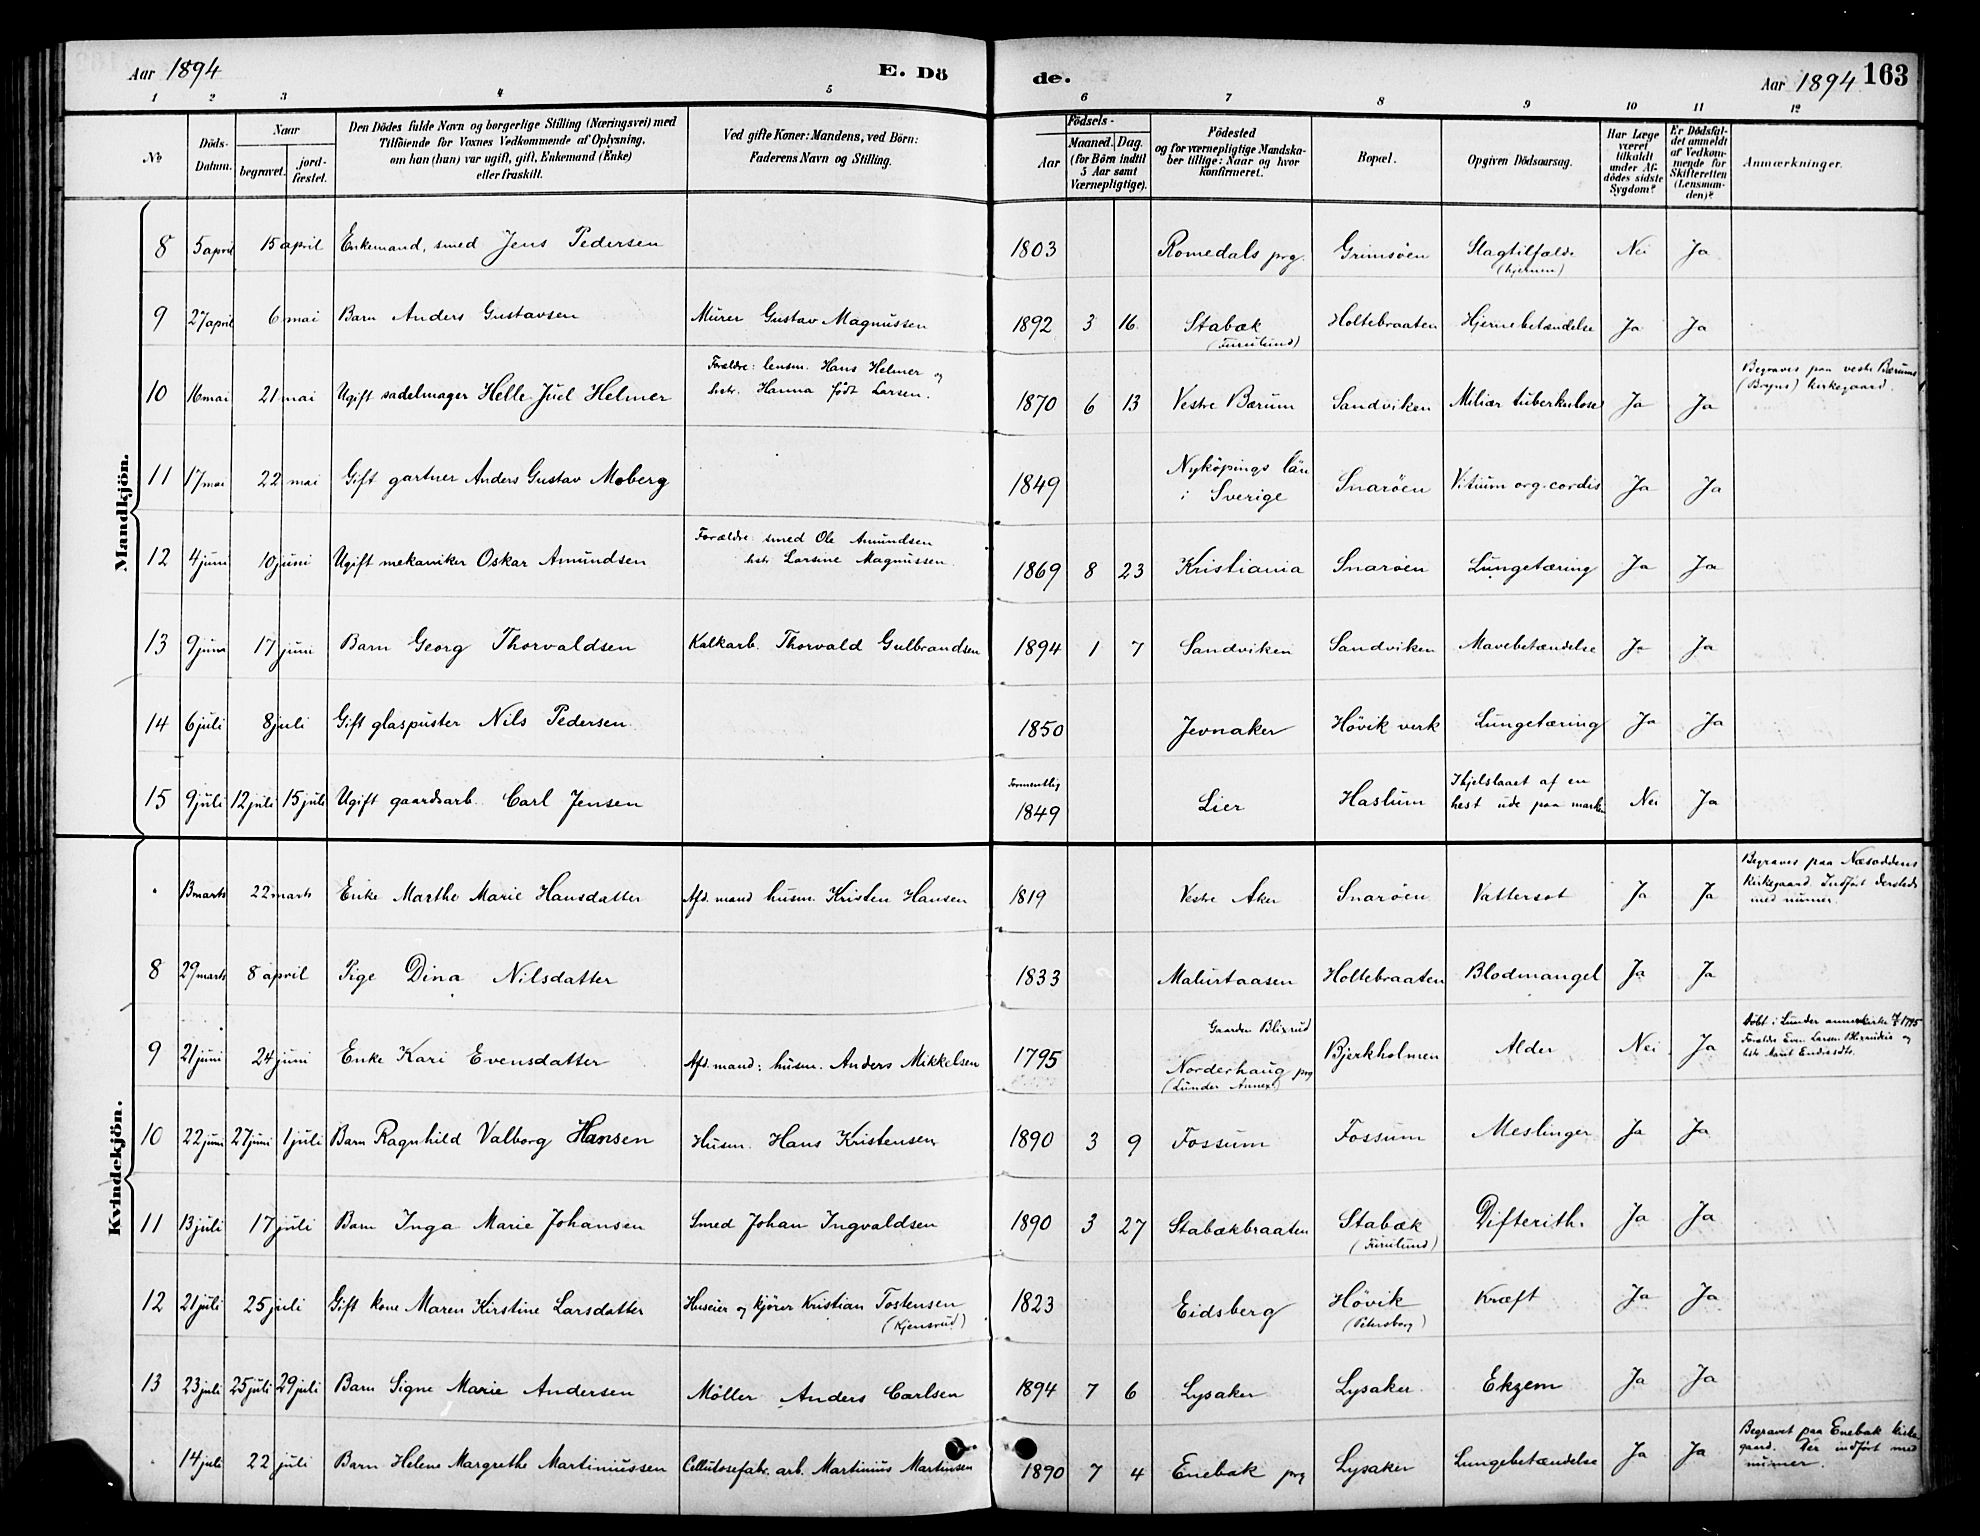 Aar 1894 E. Dö de. Aar 1894 163
1 2 3 4 5 6 7 8 9 10 11 12
No
Döds-Datum.
Naar
begravet.
jord-fæstet.
Den Dödes fulde Navn og borgerlige Stilling (Næringsvei) med
Tilföiende for Voxnes Vedkommende af Oplysning,
om han (hun) var ugift, gift, Enkemand (Enke)
eller fraskilt.
Ved gifte Koner: Mandens, ved Börn:
Faderens Navn og Stilling.
Födsels-
Aar
Maaned. Dag.
(for Börn indtil
5 Aar samt
Værnepligtige).
Födested
og for værnepligtige Mandska-
ber tillige: Naar og hvor
konfirmeret.
Bopæl.
Opgiven Dödsaarsag.
Har Læge
været
tilkaldt
under Af-
dödes sidste
Sygdom?
Er Dödsfal-
det anmeldt
af Vedkom-
mende for
Skifteretten
(Lensman-
den)?
Anmærkninger.
Mandkjön.
8 5 april 15 april Enkemand, smed Jens Pedersen 1803 Romedals prg. Grimsöen Slagtilfælde (hjernen) Nei Ja
9 27 april 6 mai Barn Anders Gustavsen Murer Gustav Magnussen 1892 3 16 Stabæk (Furulund) Holtebraaten Hjernebetændelse Ja Ja
10 16 mai 21 mai Ugift sadelmager Helle Juel Helmer Forældre: lensm. Hans Helmer og hstr. Hanna født Larsen. 1870 6 13 Vestre Bærum Sandviken Miliær tuberkulose Ja Ja Begraves paa vestre Bærums (Bryns) kirkegaard.
11 17 mai 22 mai Gift gartner Anders Gustav Moberg 1849 Nyköpings län i Sverige Snaröen Vitium org. cordis Ja Ja
12 4 juni 10 juni Ugift mekaniker Oskar Amundsen Forældre: smed Ole Amundsen hstr Larsine Magnussen. 1869 8 23 Kristiania Snaröen Lungetæring Ja Ja
13 9 juni 17 juni Barn Georg Thorvaldsen Kalkarb. Thorvald Gulbrandsen 1894 1 7 Sandviken Sandviken Mavebetændelse Ja Ja
14 6 juli 8 juli Gift glaspuster Nils Pedersen 1850 Jevnaker Hövik verk Lungetæring Ja Ja
15 9 juli 12 juli 15 juli Ugift gaardsarb. Carl Jensen Formentlig 1849 Lier Haslum Ihjelslaaet af en hest ude paa marken Nei Ja
Kvindekjön.
13 marts 22 marts Enke Marthe Marie Hansdatter Afd. mand husm. Kristen Hansen 1819 Vestre Aker Snaröen Vattersot Ja Ja Begraves paa Næsoddens kirkegaard. Indført dersteds med numer.
8 29 marts 8 april Pige Dina Nilsdatter 1833 Malurtaasen Holtebraaten Blodmangel Ja Ja
9 21 juni 24 juni Enke Kari Evensdatter Afd. mand: husm. Anders Mikkelsen 1795 Gaarden Blixrud Norderhaug prg (Lunder Annex) Bjerkholmen Alder Nei Ja Døbt i Lunder annexkirke 1795 Forældre Even Larsen og hstr Marit Endresdtr.
10 22 juni 27 juni 1 juli Barn Ragnhild Valborg Hansen Husm. Hans Kristensen 1890 3 9 Fossum Fossum Meslinger Ja Ja
11 13 juli 17 juli Barn Inga Marie Johansen Smed Johan Ingvaldsen 1890 3 27 Stabækbraaten Stabæk (Furulund) Difterith. Ja Ja
12 21 juli 25 juli Gift kone Maren Kirstine Larsdatter Huseier og kjører Kristian Tostensen (Kjensrud) 1823 Eidsberg Hövik (Petersborg) Kræft Ja Ja
13 23 juli 25 juli 29 juli Barn Signe Marie Andersen Møller Anders Carlsen 1894 7 6 Lysaker Lysaker Ekzem Ja Ja
14 juli 22 juli Barn Helene Margrethe Martiniussen Cellulosefabr. arb. Martinius Martinsen 1890 7 4 Enebak prg Lysaker Lungebetændelse Ja Ja Begravet paa Enebak kirkegaard. Der indført med numer.